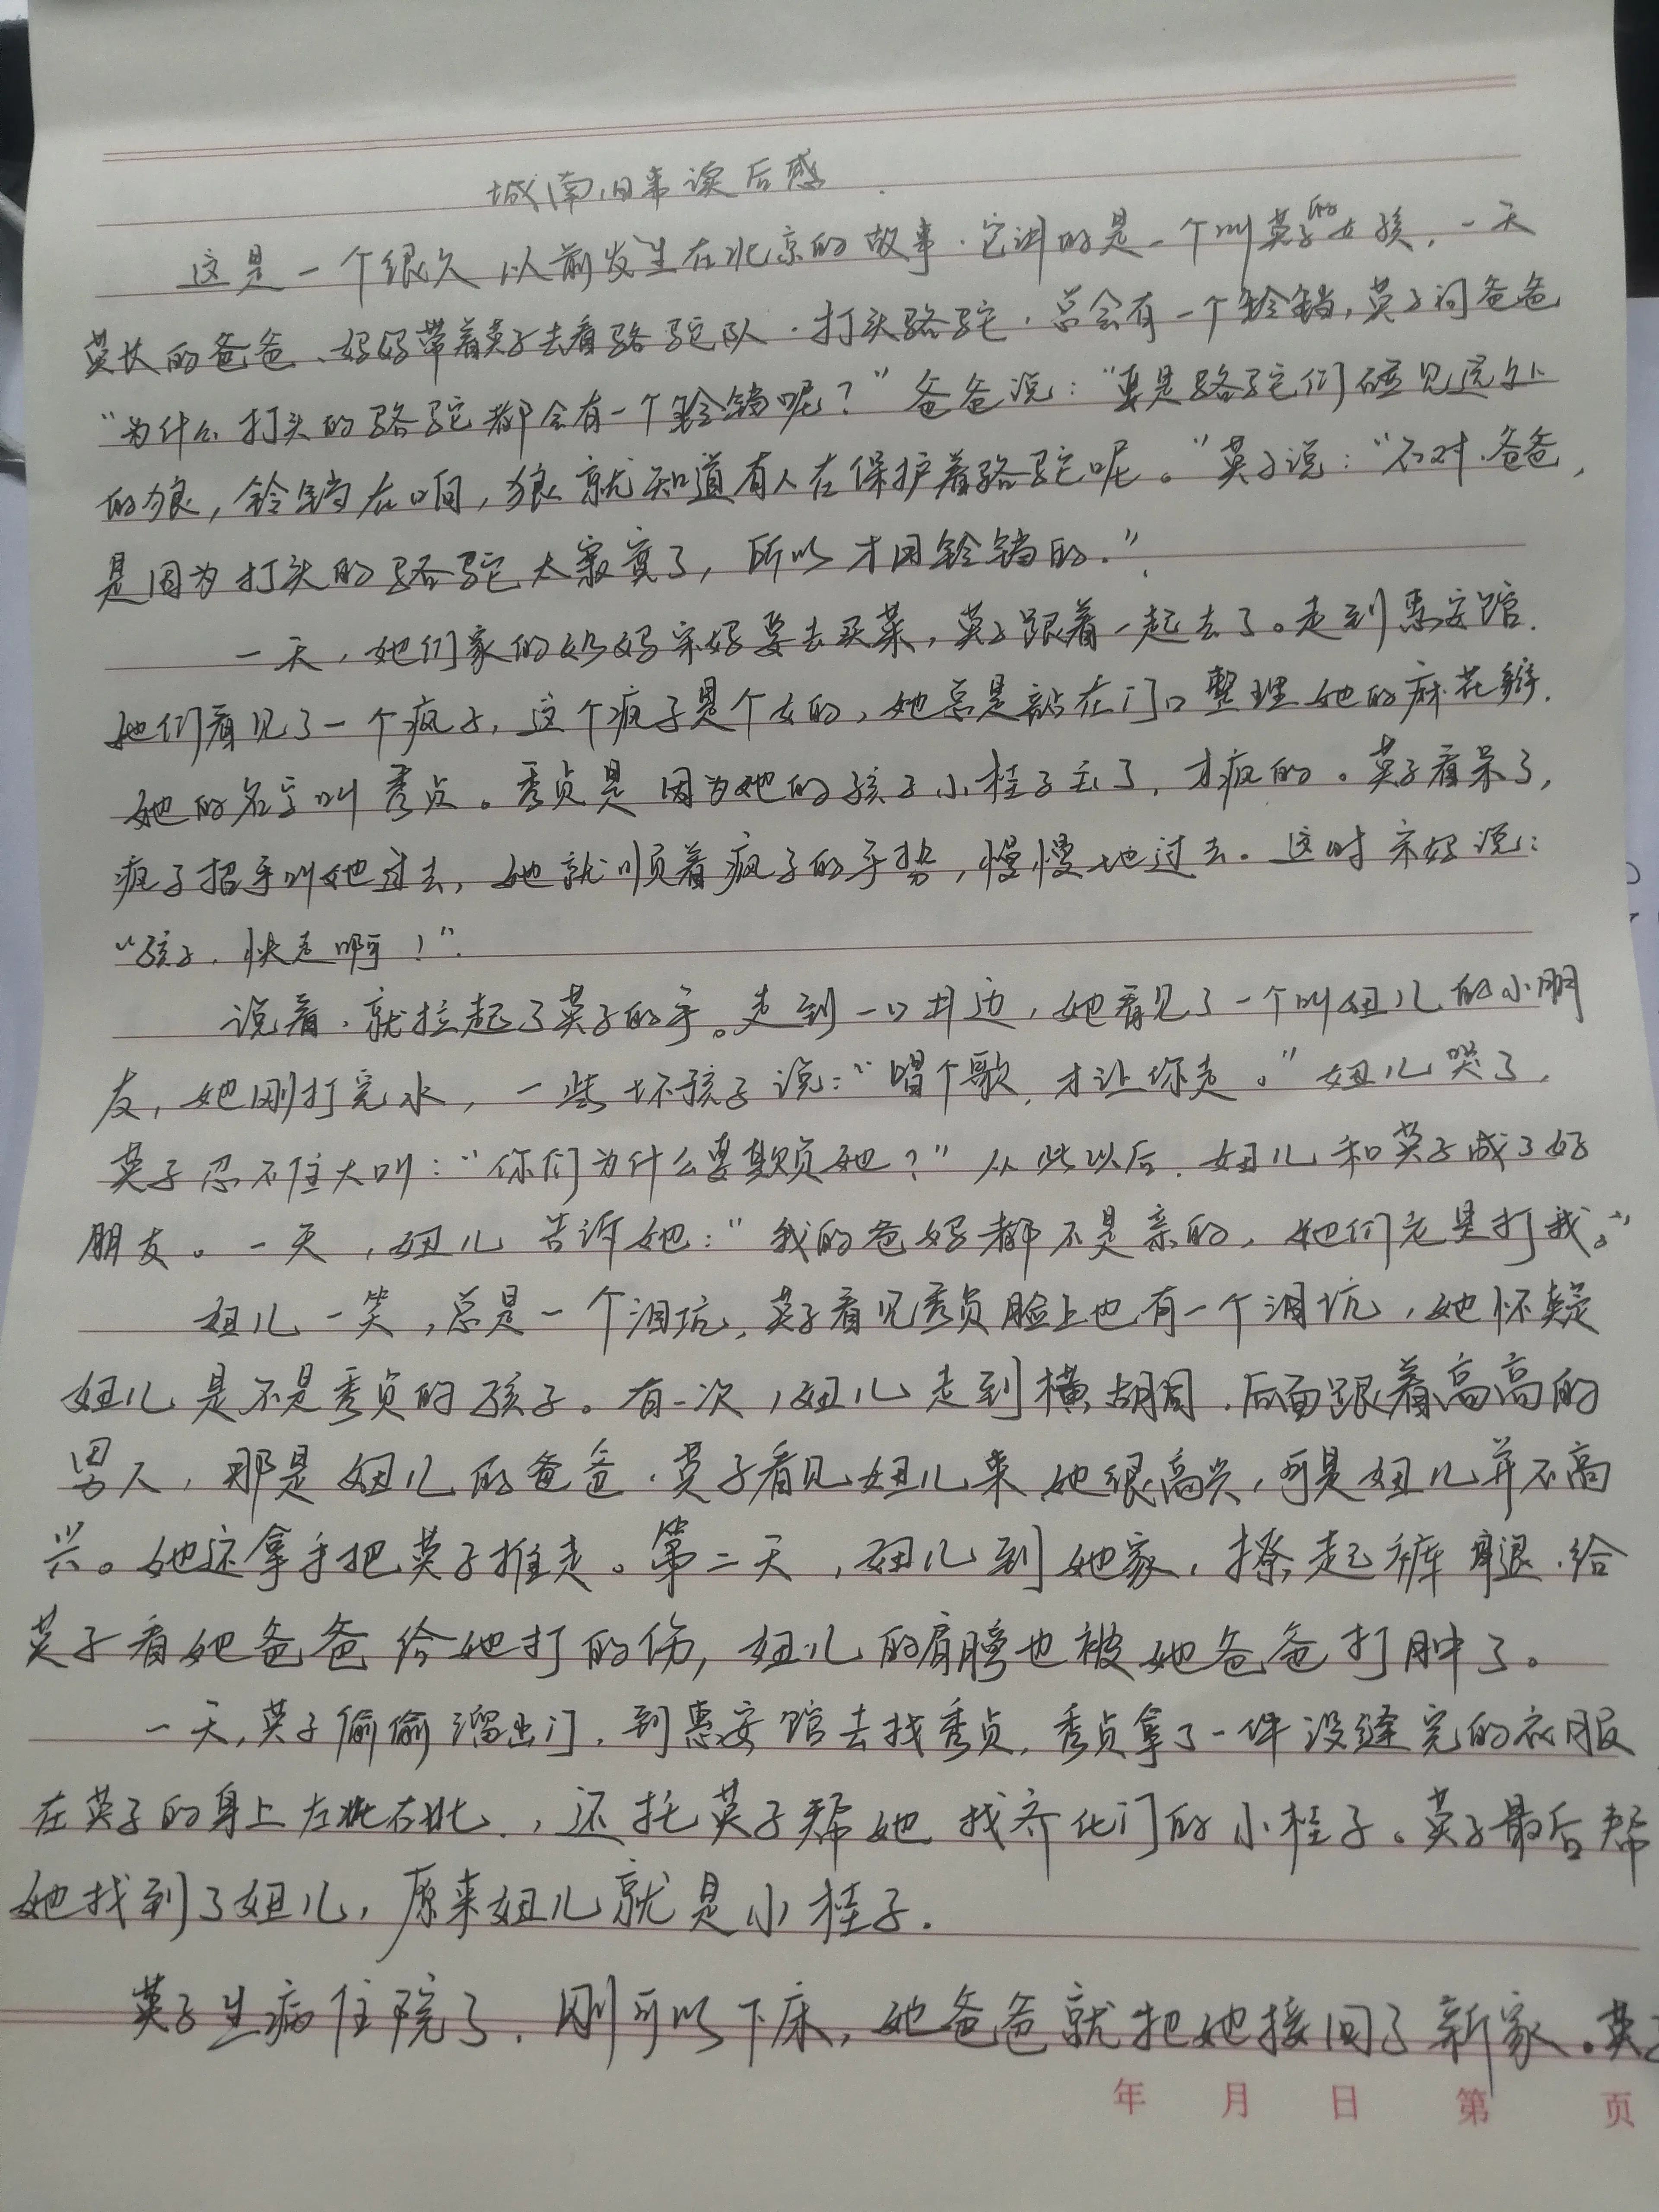 城南旧事读后感
这是一个很久以前发生在北京的故事.它讲的是一个叫英子的女孩,一天
英长的爸爸、妈妈带着英子去看骆驼队.打头骆驼.总会有一个铃铛,英子问爸爸
“为什么打头的骆驼都会有一个铃铛呢?”爸爸说:“要是骆驼们碰见远处
的狼,铃铛在响,狼就知道有人在保护着骆驼呢。”英子说:“不对.爸爸,
是因为打头的骆驼太寂寞了,所以才用铃铛的.”
一天,她们家的奶妈宋妈要去买菜,英子跟着一起去了。走到惠安馆.
她们看见了一个疯子,这个疯子是个女的,她总是站在门口整理她的麻花辫.
她的名字叫秀贞。秀贞是因为她的孩子小桂子丢了,才疯的。英子看呆了,
疯子招手叫她过去,她就顺着疯子的手势,慢慢地过去。这时宋妈说:
“孩子,快走啊!”.
说着.就拉起了英子的手。走到一口井边,她看见了一个叫妞儿的小朋
友,她刚打完水,一些坏孩子说:“唱个歌,才让你走。”妞儿哭了,
英子忍不住大叫:“你们为什么要欺负她?”从此以后.妞儿和英子成了好
朋友。一天,妞儿告诉她:“我的爸妈都不是亲的,她们老是打我。”
妞儿一笑,总是一个泪坑,英子看见秀贞脸上也有一个泪坑,她怀疑
妞儿是不是秀贞的孩子。有一次,妞儿走到横胡同.后面跟着高高的
男人,那是妞儿的爸爸.英子看见妞儿来她很高兴,可是妞儿并不高
兴。她还拿手把英子推走。第二天,妞儿到她家,撩起裤腿.给
英子看她爸爸给她打的伤,妞儿的肩膀也被她爸爸打肿了。
一天,英子偷偷溜出门,到惠安馆去找秀贞,秀贞拿了一件没缝完的衣服
在英子的身上左比右比.,还托英子帮她找齐化门的小桂子。英子最后帮
她找到了妞儿,原来妞儿就是小桂子.
英子生病住院了,刚可以下床,她爸爸就把她接回了新家.英子
年 月 日 第 页